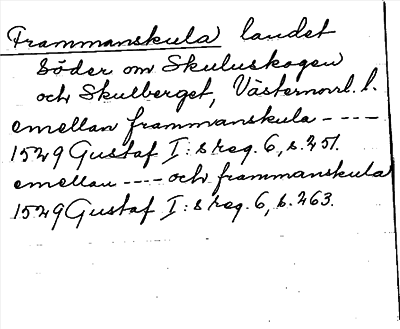 Frammanskula landet
söder om Skuluskogen
och Skulberget, Västernorrl. l.
emellan frammanskula ----
1529 Gustaf I:s reg. 6, s. 251.
emellan ---- och frammanskula
1529 Gustaf I:s reg. 6, s. 263.